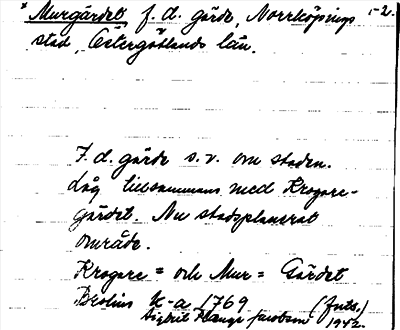 * Murgärdet f. d. gärde, Norrköpings 1-2.
stad, Östergötlands län.
F. d. gärde s. v. om staden.
Låg tillsammans med Krogare-
gärdet. Nu stadsplanerat
område.
Krogare = och Mur = Gärdet
Brolius K-a 1769 (Avts.)
Sigbrit Plænge Jacobson 1942.